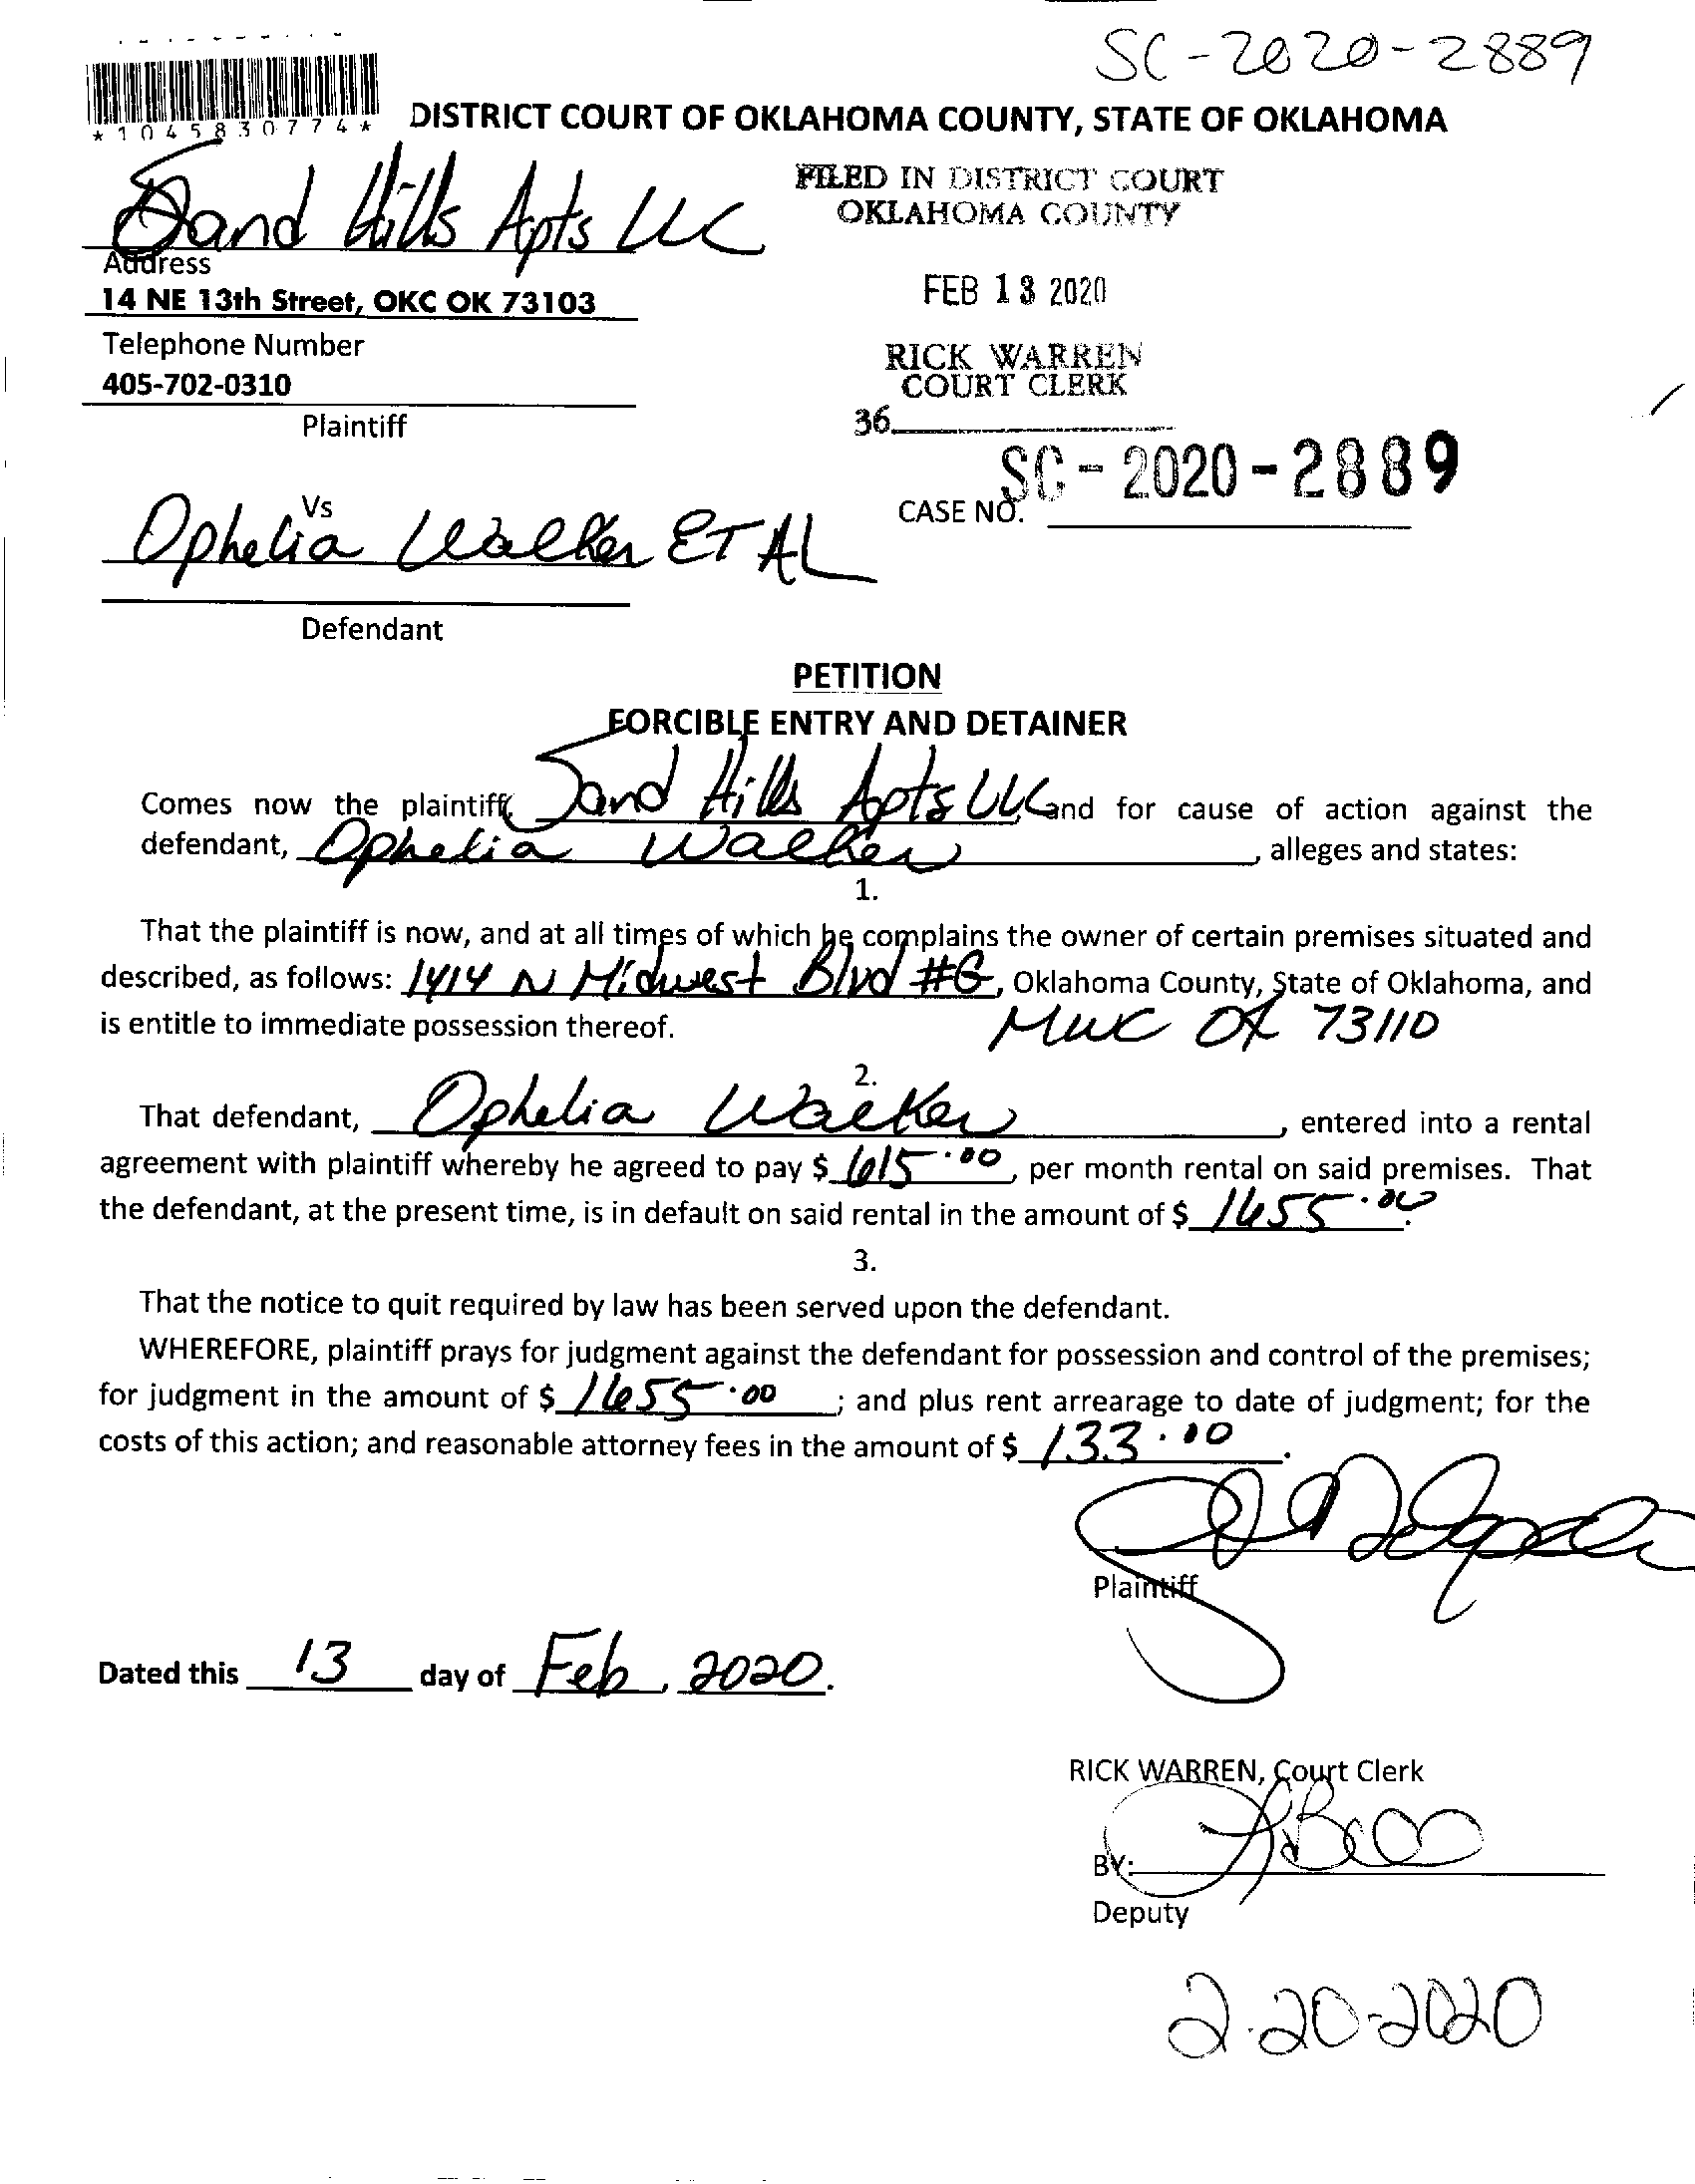 SC-2020-2889
*1045830774*
DISTRICT COURT OF OKLAHOMA COUNTY, STATE OF OKLAHOMA
Sand Hills Apts LLC
Address
14 NE 13th Street, OKC OK 73103
Telephone Number
405-702-0310
Plaintiff
FILED IN DISTRICT COURT
OKLAHOMA COUNTY
FEB 13 2020
RICK WARREN
COURT CLERK
36
SC-2020-2889
CASE NO.
Vs
Ophelia Walker ET AL
Defendant
PETITION
FORCIBLE ENTRY AND DETAINER
Comes now the plaintiff, Sand Hills Apts LLC, and for cause of action against the
defendant, Ophelia Walker, alleges and states:
1.
That the plaintiff is now, and at all times of which he complains the owner of certain premises situated and
described, as follows: 1414 N Midwest Blvd #G, Oklahoma County, State of Oklahoma, and
is entitle to immediate possession thereof. MWC OK 73110
2.
That defendant, Ophelia Walker, entered into a rental
agreement with plaintiff whereby he agreed to pay $ 615.00, per month rental on said premises. That
the defendant, at the present time, is in default on said rental in the amount of $ 1655.00.
3.
That the notice to quit required by law has been served upon the defendant.
WHEREFORE, plaintiff prays for judgment against the defendant for possession and control of the premises;
for judgment in the amount of $ 1655.00; and plus rent arrearage to date of judgment; for the
costs of this action; and reasonable attorney fees in the amount of $ 133.00.
Plaintiff
Dated this 13 day of Feb, 2020.
RICK WARREN, Court Clerk
BY:
Deputy
2-20-2020